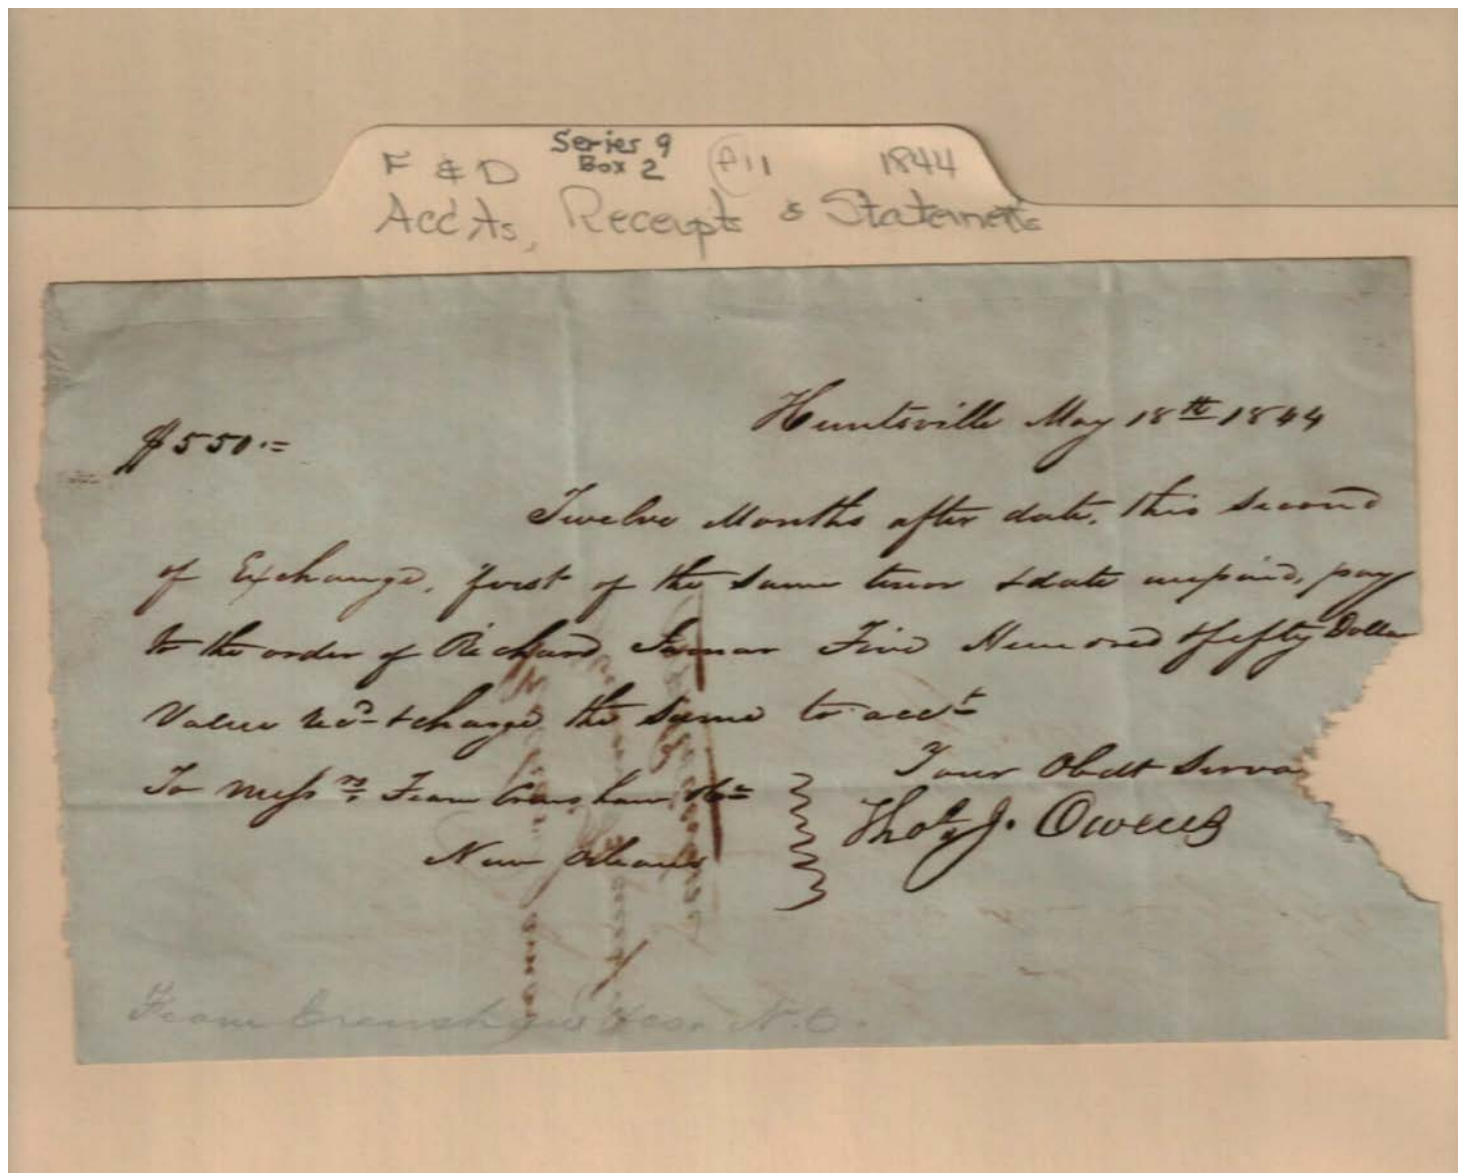 Series 9
F & D Box 2 F11 1844
Acc'ts, Receipts & Statements
Huntsville May 18th 1844
$550.=
Twelve Months after date, this Second
of Exchange, first of the same tenor & date unpaid, pay
to the order of Richard Five Hundred & fifty Dollar
Value recd & charge the Same to acct
Your Obdt Serva
To Messrs Fearn Crenshaw & Co
Thos J. Owens
New Orleans
Fearn Crenshaw & Co. N.O.